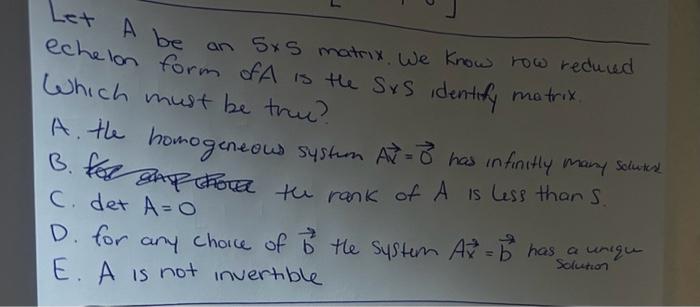 Let A be an 5x5 matrix. We know row reduced
echelon form of A is the 5x5 identify matrix.
Which must be true?
A. the homogeneous system Av⃗ = 0⃗ has infinitly many
B. the rank of A is less than 5.
C. det A=0
D. for any choice of b⃗ the system Ax⃗ = b⃗ has a uniqu
solution
E. A is not invertible